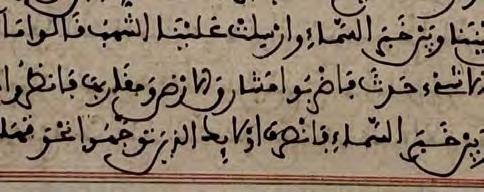 بيننا وبين خبر السماء وارسلت علينا الشهب قالوا ما
شيء حدث فاضربوا مشارق الارض ومغاربها فانظروا
وبين خبر السماء فانصرف اولئك الذين توجهوا نحو تهامة